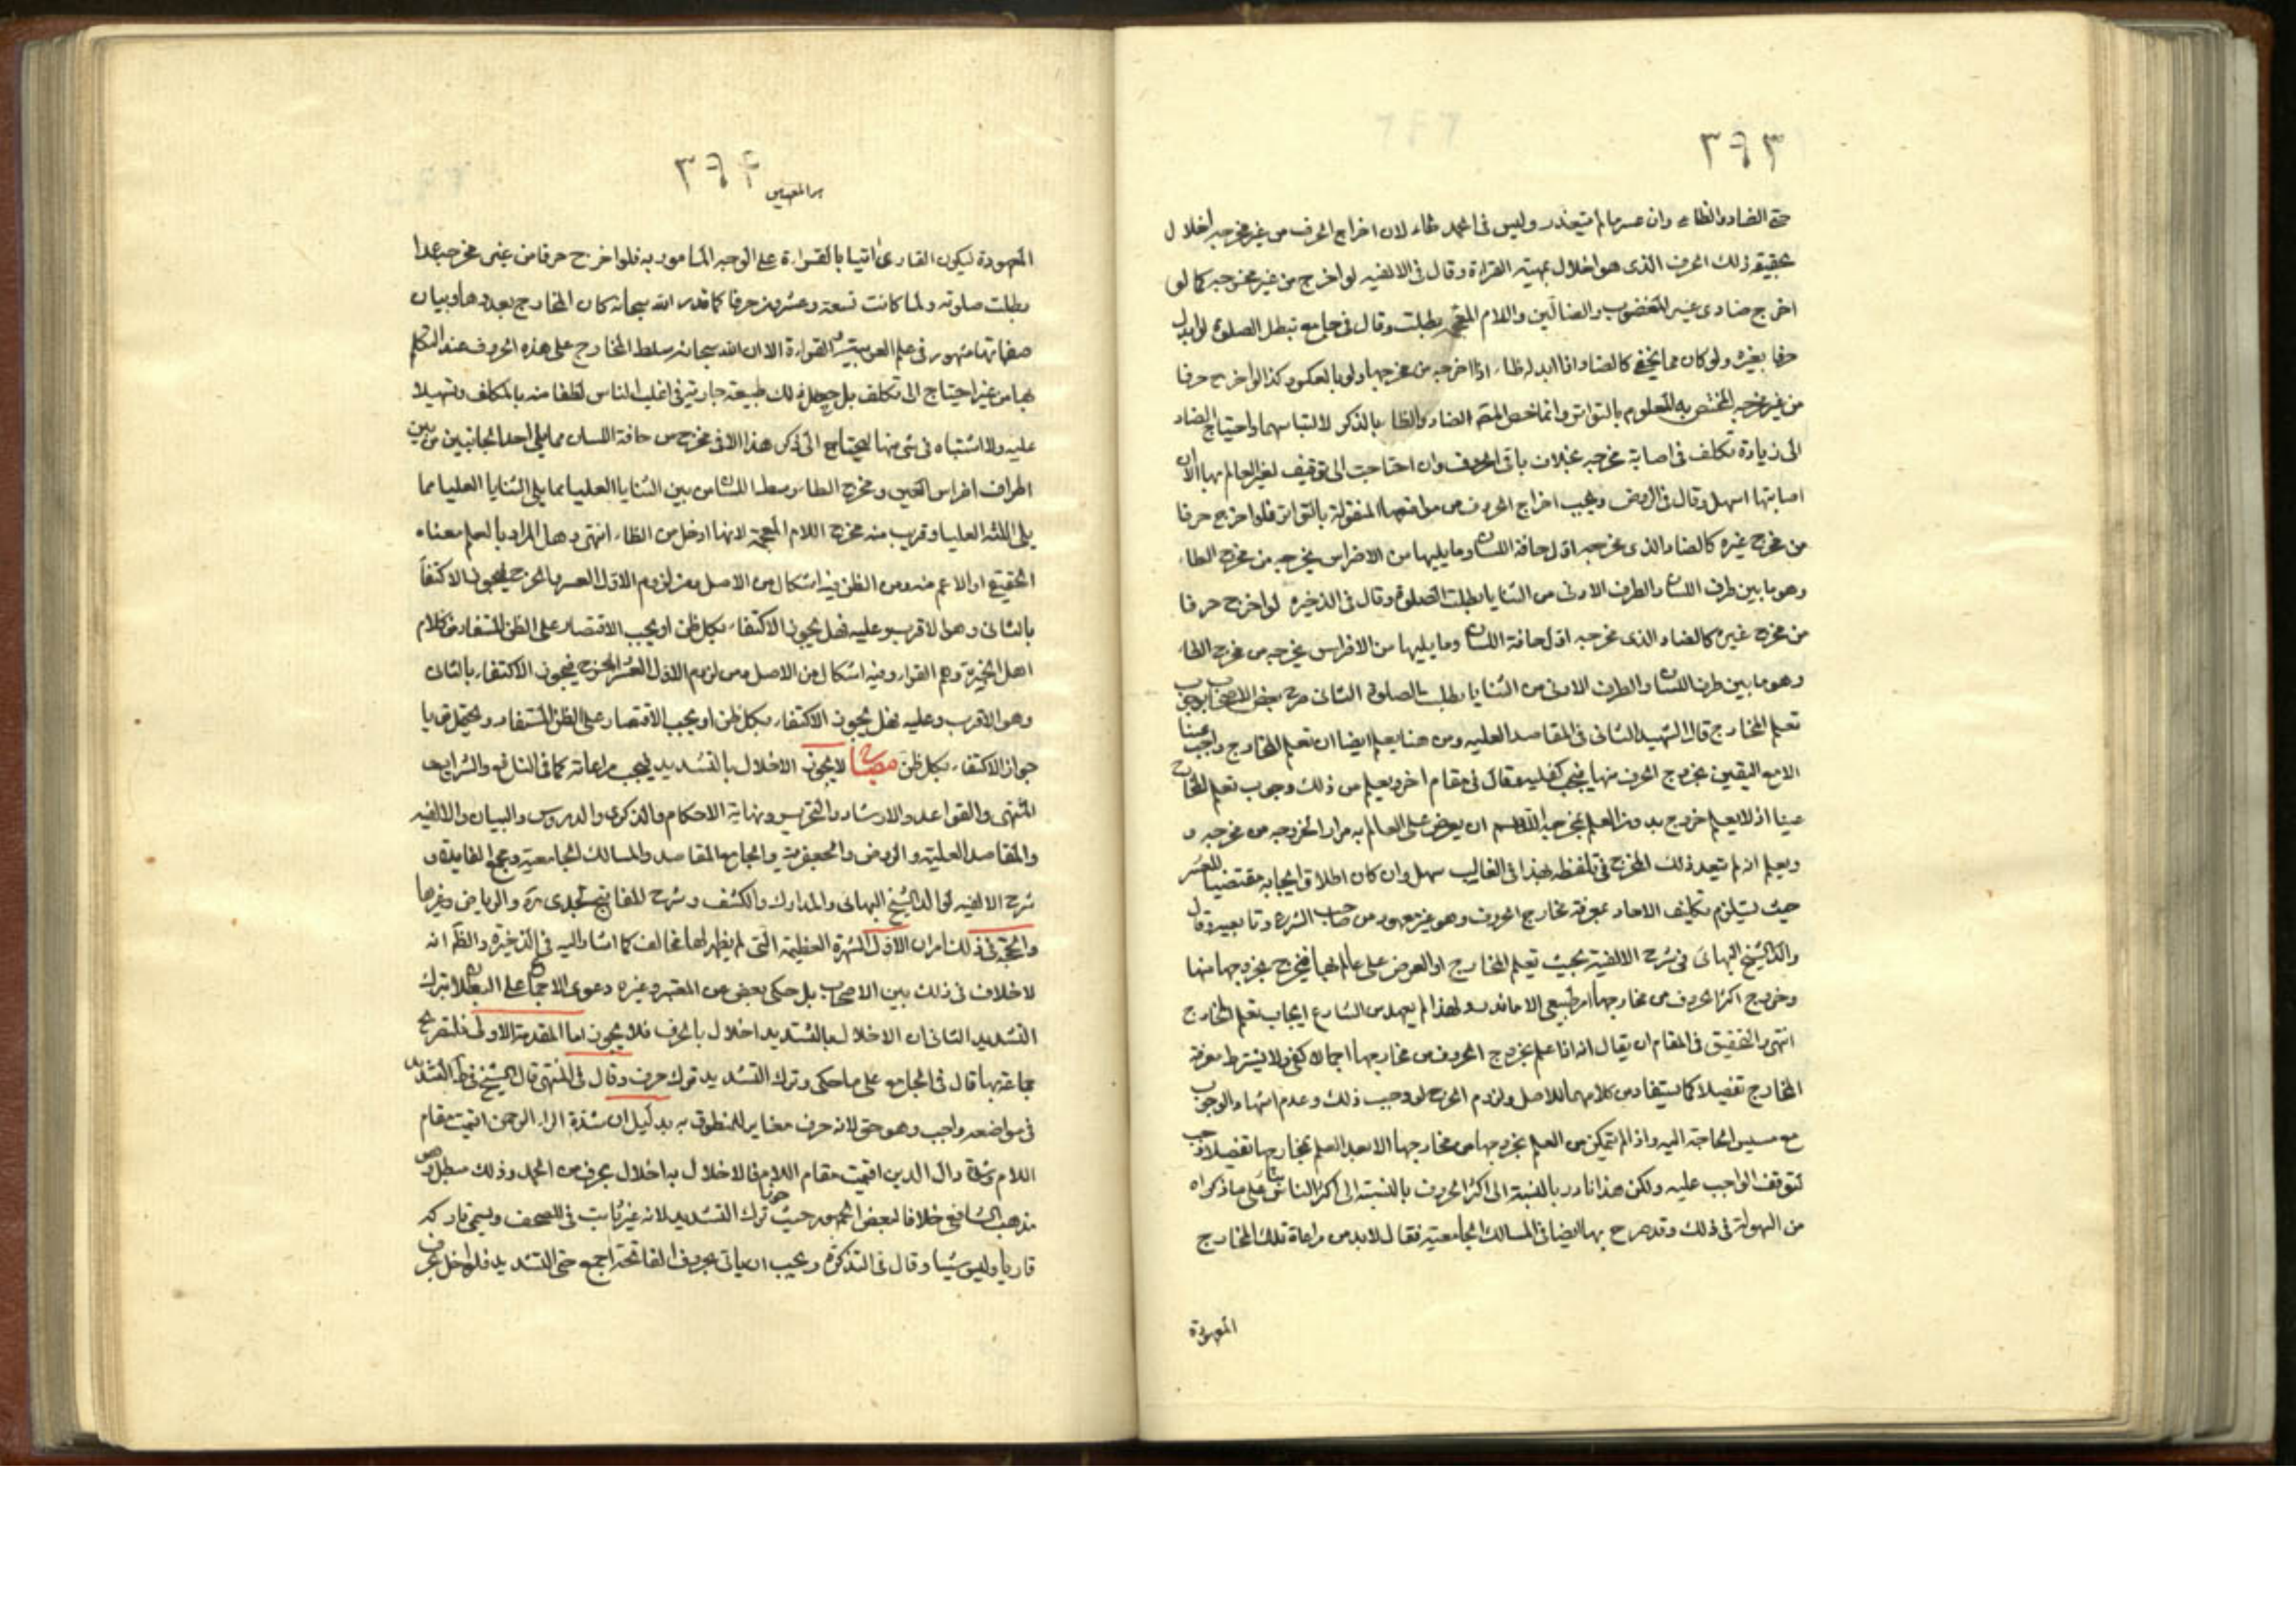 ٣٩٣
حتى الضاد والظاء وان عسر ما لم يتعذر وليس في الحمد ظاء لان اخراج الحرف من غير مخرجه اخلال
بحقيقة ذلك الحرف الذى هو اخلال بمهية القراءة وقال في الالفيه لو اخرج من غير مخرجه كما لو
اخرج ضادى غير المغضوب والضالين واللام المفخمة بطلت وقال في جامع تبطل الصلوة لو ابدل
حرفا بغيره ولو كان مما يخفى كالضاد اذا ابدله ظاء اذا اخرجه من مخرجها ولو بالعكس وكذا لو اخرج حرفا
من غير مخرجه المختص به المعلوم بالتواتر وانما خص المقم الضاد والظا بالذكر لالتباسهما واحتياج الضاد
الى زيادة تكلف في اصابة مخرجه بخلاف باقى الحروف وان احتاجت الى توقيف لغير العالم بها الا ان
اصابتها اسهل وقال في الروض ويجب اخراج الحروف من مواضعها المنقولة بالتواتر فلو اخرج حرفا
من مخرج غيره كالضاد الذى مخرجه اول حافة اللسان وما يليها من الاضراس يخرجه من مخرج الظاء
وهو ما بين طرف اللسان والطرف الادنى من الثنايا بطلت الصلوة وقال في الذخيره لو اخرج حرفا
من مخرج غيره كالضاد الذى مخرجه اول حافة اللسان وما يليها من الاضراس يخرجه من مخرج الظاء
وهو ما بين طرف اللسان والطرف الادنى من الثنايا بطلت الصلوة الثانى صرح بعض الاصحاب بوجوب
تعلم المخارج قال الشهيد الثانى في المقاصد العليه ومن هنا يعلم ايضا ان تعلم المخارج واجب عينا
الا مع اليقين بخروج الحرف منها فيجب كفاية وقال في مقام اخر ويعلم من ذلك وجوب تعلم المخارج
عينا اذ لا يعلم خروجه بدون العلم بمخرجه ان يعرض على العالم به مرارا لخروجه من مخرجه و
ويعلم انه لم يتعد ذلك المخرج في تلفظه بهذا في الغالب سهل وان كان اطلاق ايجابه مقتضيا للعسر
حيث يستلزم تكليف الاحاد بمعرفة مخارج الحروف وهو غير معهود من صاحب الشرع وتابعيه وقال
والد الشيخ البهائى في شرح الالفية يجب تعلم المخارج او العرض على عالم بها فيخرج بخروجها منها
وخروج اكثر الحروف من مخارجها امر طبيعى الا ما ندر ولهذا لم يعهد من الشارع ايجاب تعلم المخارج
انتهى والتحقيق في المقام ان يقال انه اذا علم بخروج الحروف من مخارجها اجمالا كفى ولا يشترط معرفة
المخارج تفصيلا كما يستفاد من كلامهما للاصل ولزوم الحرج لو وجب ذلك وعدم اشتهار الوجوب
مع مسيس الحاجة اليه واذا لم يتمكن من العلم بخروجها من مخارجها الا بعد العلم بمخارجها تفصيلا وجب
لتوقف الواجب عليه ولكن هذا نادر بالنسبة الى اكثر الحروف بالنسبة الى اكثر الناس بناء على ما ذكراه
من السهولة في ذلك وقد صرح بها ايضا في المسالك الجامعية فقال لا بد من مراعاة تلك المخارج
المعهودة
٣٩۴
المعهودة ليكون القارى اتيا بالقراءة على الوجه المامور به فلو اخرج حرفا من غير مخرجه عمدا
بطلت صلوته ولما كانت تسعة وعشرون حرفا كما قدر الله سبحانه كان المخارج بعددها وبيان
صفاتها مشهور في علم العربية والقراءة الا ان الله سبحانه سلط المخارج على هذه الحروف عند التكلم
بها من غير احتياج الى تكلف بل جعل ذلك طبيعة جارية في اغلب الناس لطفا منه بالمكلف وتسهيلا
عليه ولا اشتباه في شئ منها ليحتاج الى ذكر هذا الا في مخرج ض حافة اللسان مما يلى احد الجانبين من بين
اطراف اضراس اللحيين ومخرج الظاء وسط اللسان من بين الثنايا العليا مما يلى الثنايا العليا مما
يلى اللثة العليا وقريب منه مخرج اللام المعجمة لانها ادخل من الظاء انتهى وهل المراد بالعلم معناه
الحقيقى او الاعم منه ومن الظن فيه اشكال من الاصل ومن لزوم الاول العسر والحرج فيجوز الاكتفاء
بالثانى وهو الاقرب وعليه فهل يجوز الاكتفاء بكل ظن او يجب الاقتصار على الظن المستفاد من كلام
اهل الخبرة وهم القراء وفيه اشكال من الاصل ومن لزوم الاول العسر والحرج فيجوز الاكتفاء بالثانى
وهو الاقرب وعليه فهل يجوز الاكتفاء بكل ظن او يجب الاقتصار على الظن المستفاد ويحتمل قويا
جواز الاكتفاء بكل ظن لا يجوز الاخلال بالتشديد فيجب مراعاته كما في النافع والشرايع
المنتهى والقواعد والارشاد والتحرير ونهاية الاحكام والذكرى والدروس والبيان والالفيه
والمقاصد العلية والروض والجعفرية والجامع المقاصد والمسالك الجامعية ومجمع الفايدة و
شرح الالفيه لوالد الشيخ البهائى والمدارك والكشف وشرح المفاتيح لجدى ره والرياض وغيرها
والحجة في ذلك امران الاول الشهرة العظيمة التى لم يظهر لها مخالف كما اشار اليه في الذخيرة والظاهر انه
لا خلاف في ذلك بين الاصحاب بل حكى بعض عن المعتبر وغيره دعوى الاجماع على البطلان بترك
التشديد الثانى ان الاخلال بالتشديد اخلال بالحرف فلا يجوز اما المقدمة الاولى فلتصريح
جماعة بها قال في الجامع على ما حكى وترك التشديد ترك حرف وقال في المنتهى قال الشيخ في ط التشديد
في مواضعه واجب وهو حق لانه حرف مغاير للمنطوق به بدليل ان شدة الراء الرحمن اقيمت مقام
اللام وشدة دال الدين اقيمت مقام اللام فالاخلال به اخلال بحرف من الحمد وذلك مبطل وهو
مذهب الشافعى خلافا لبعض الجمهور حيث جوز ترك التشديد لانه غير ثابت في المصحف ويسمى تاركه
قاريا وليس شيئا وقال في التذكرة ويجب ان ياتى بحروف الفاتحة اجمع حتى التشديد فلو اخل بحرف